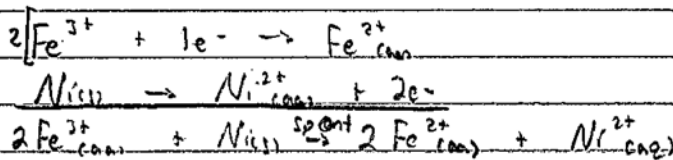 2[Fe³⁺ + 1e⁻ → Fe²⁺(aq)
Ni(s) → Ni²⁺(aq) + 2e⁻
2 Fe³⁺(aq) + Ni(s) spont→ 2 Fe²⁺(aq) + Ni²⁺(aq)